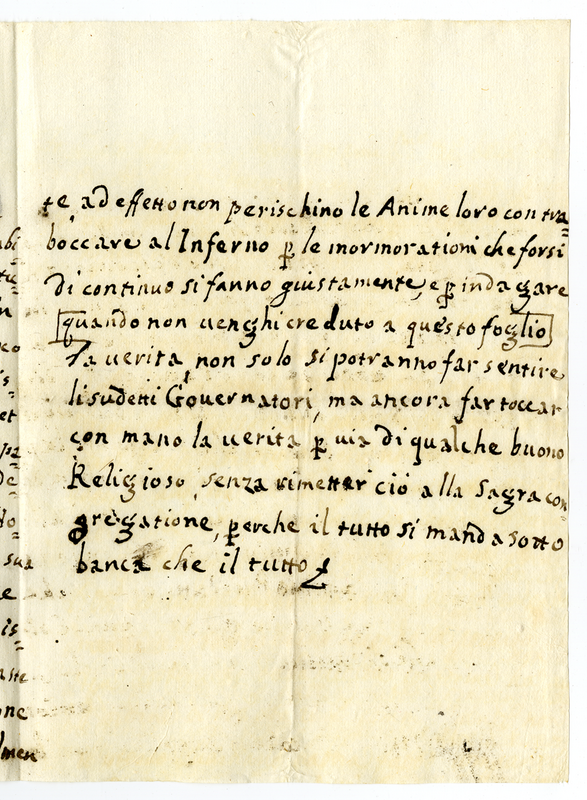 te, ad effetto non perischino le Anime loro con tra=
boccare al Inferno ꝑ le mormorationi che forsi
di continuo si fanno giustamente, e ꝑ indagare
[quando non uenghi creduto a questo foglio]
la uerita, non solo si potranno far sentire
li sudetti Gouernatori, ma ancora far toccar
con mano la uerita ꝑ uia di qualche buono
Religioso, senza rimetter ciò alla Sagra con
gregatione, ꝑche il tutto si manda sotto
banca che il tutto